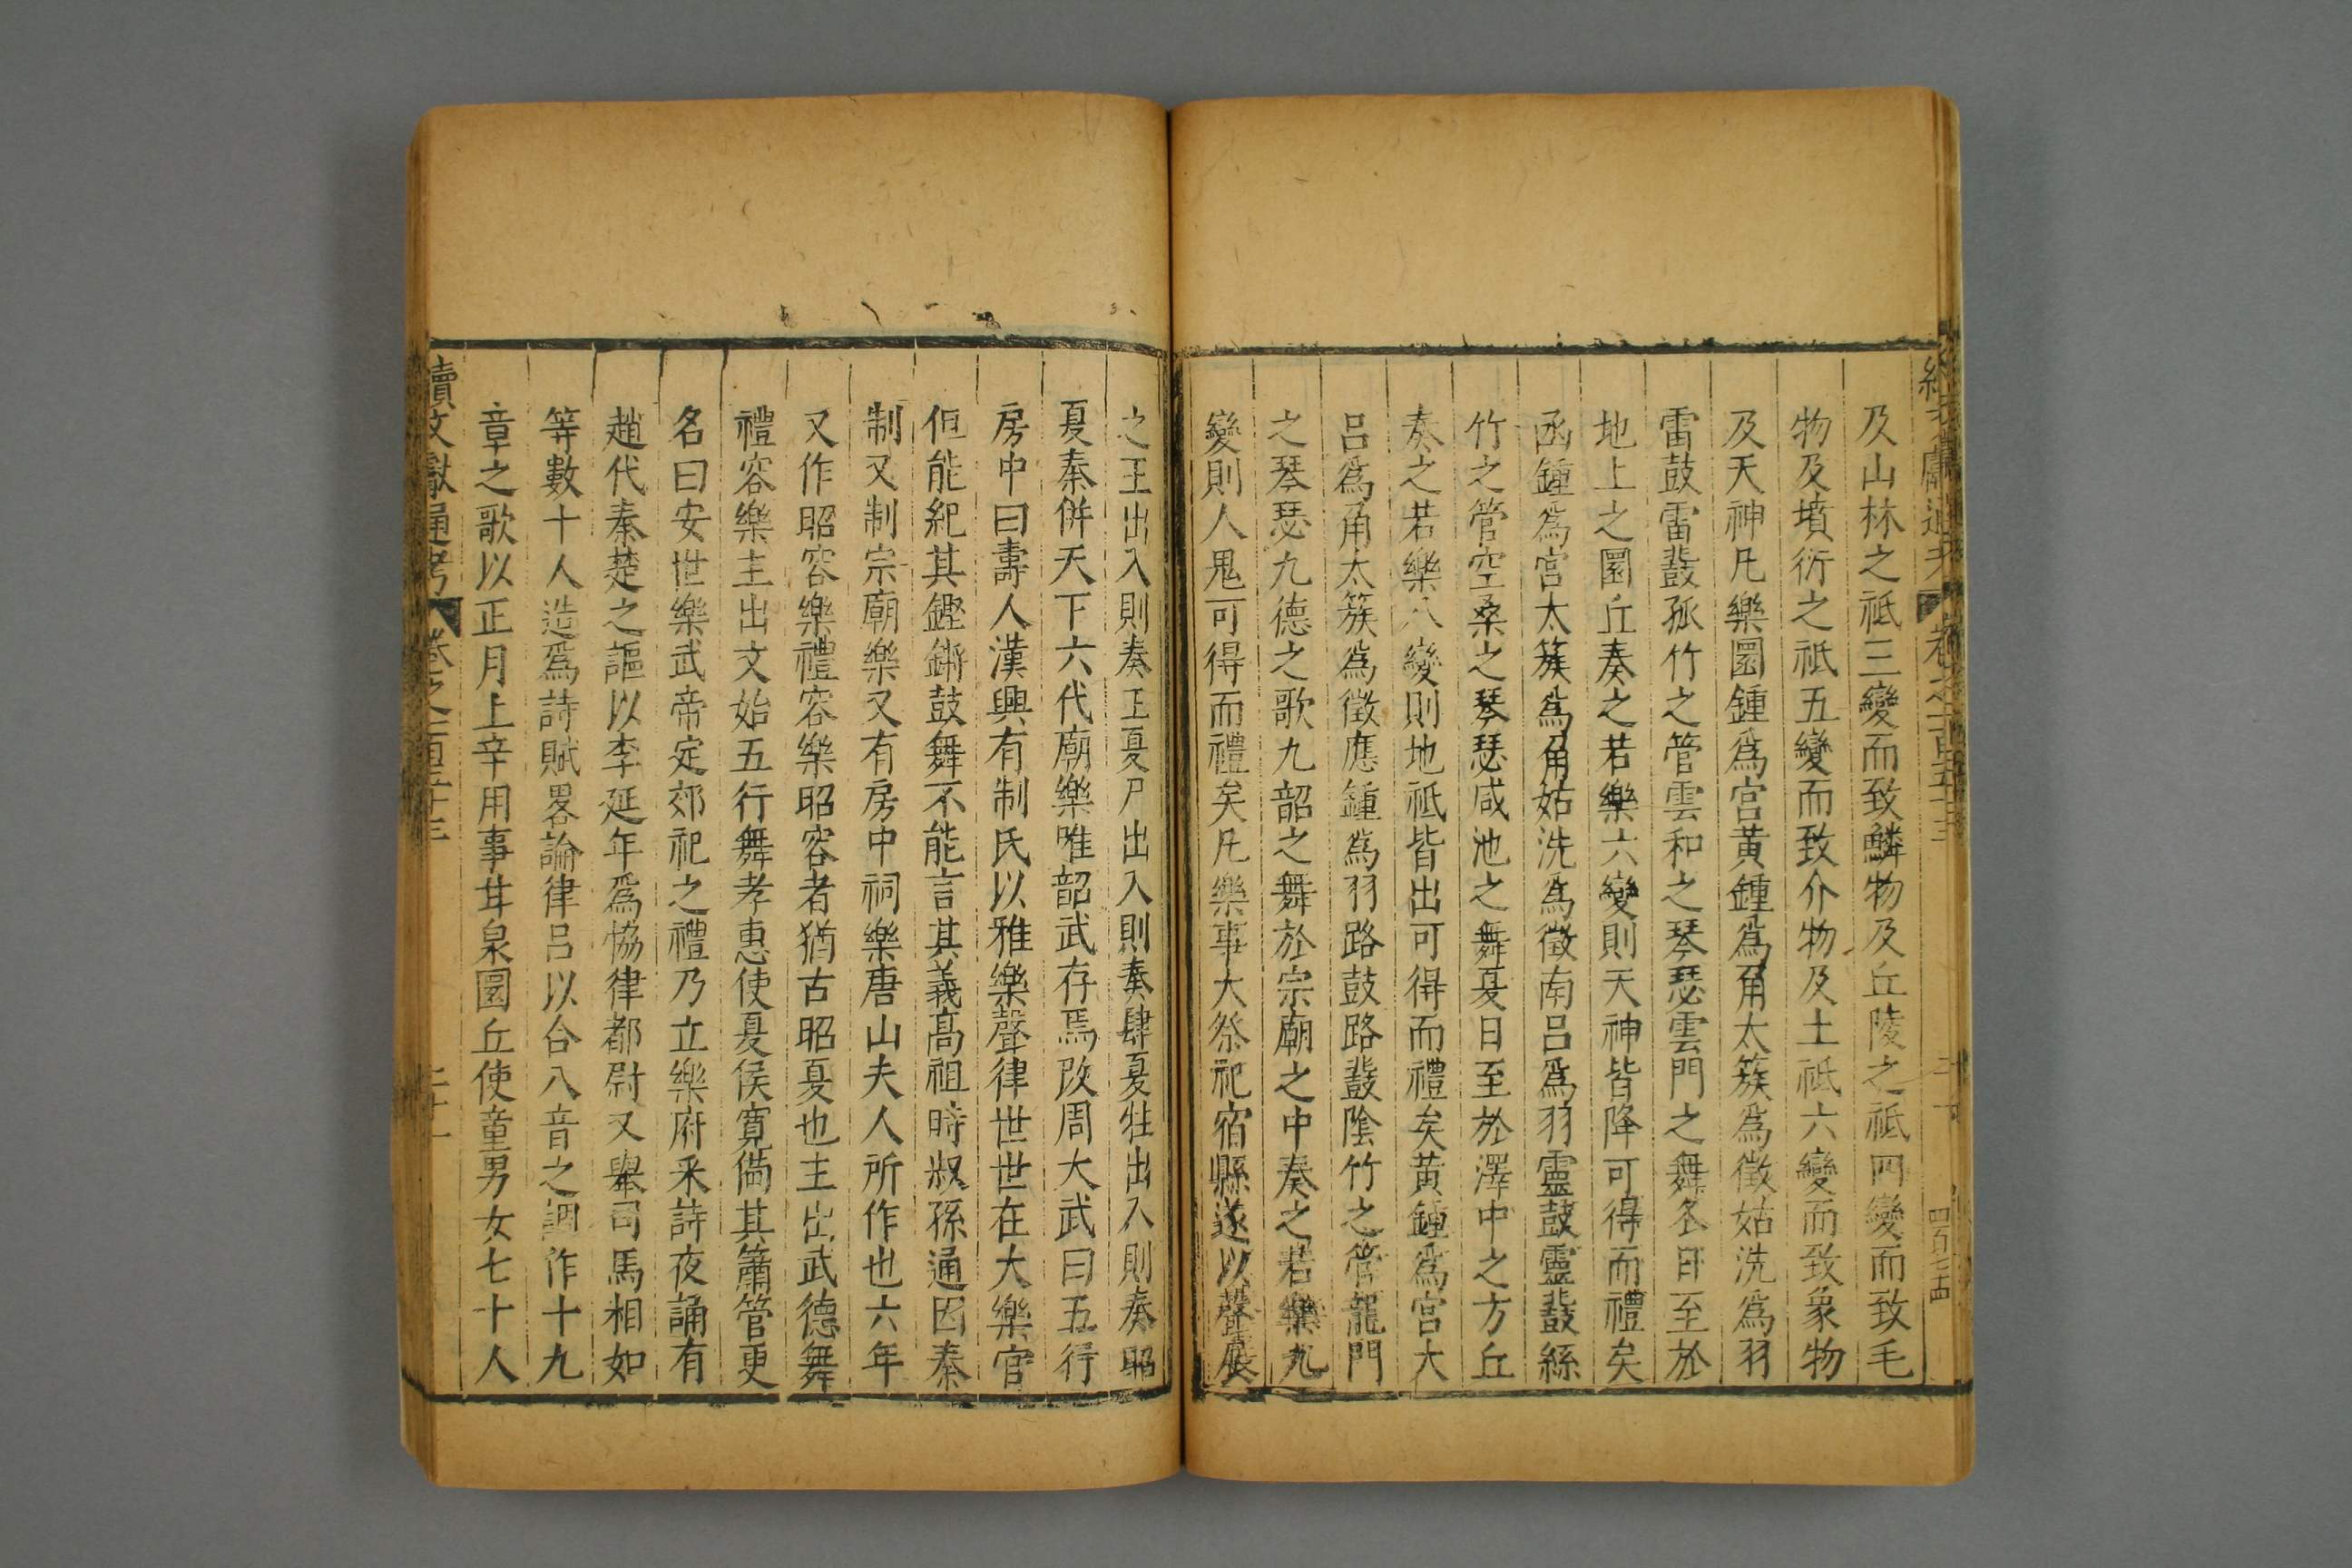 及山林之祗三變而致鱗物及丘陵之祗四變而致毛
物及墳衍之祇五變而致介物及土祗六變而致象物
及天神凡樂圜鍾爲宮黃鍾爲角太簇爲徵姑洗爲羽
雷鼓雷鼗孤竹之管雲和之琴瑟雲門之舞冬日至於
地上之圜丘奏之若樂六變則天神皆降可得而禮矣
函鍾爲宮太簇爲角姑洗爲徵南呂爲羽靈鼓靈鼗絲
竹之管空桑之琴瑟咸池之舞夏日至於澤中之方丘
奏之若樂八變則地祗皆出可得而禮矣黃鍾爲宮大
呂爲角太簇爲徵應鍾爲羽路鼓路鼗陰竹之管龍門
之琴瑟九德之歌九韶之舞於宗廟之中奏之若樂九
變則人鬼可得而禮矣凡樂事大祭祀宿縣遂以聲展
之王出入則奏王夏尸出入則奏肆夏牲出入則奏昭
夏秦併天下六代廟樂唯韶武存焉改周大武曰五行
房中曰壽人漢興有制氏以雅樂聲律世世在大樂官
但能紀其鏗鏘鼓舞不能言其義高祖時叔孫通因秦
制又制宗廟樂又有房中祠樂唐山夫人所作也六年
又作昭容樂禮容樂昭容者猶古昭夏也主出武德舞
禮容樂主出文始五行舞孝惠使夏侯寬備其簫管更
名曰安世樂武帝定郊祀之禮乃立樂府采詩夜誦有
趙代秦楚之謳以李延年爲協律都尉又舉司馬相如
等數十人造爲詩賦畧論律呂以合八音之調作十九
章之歌以正月上辛用事甘泉圜丘使童男女七十人
續文獻通考 卷之一百五十三 二十一